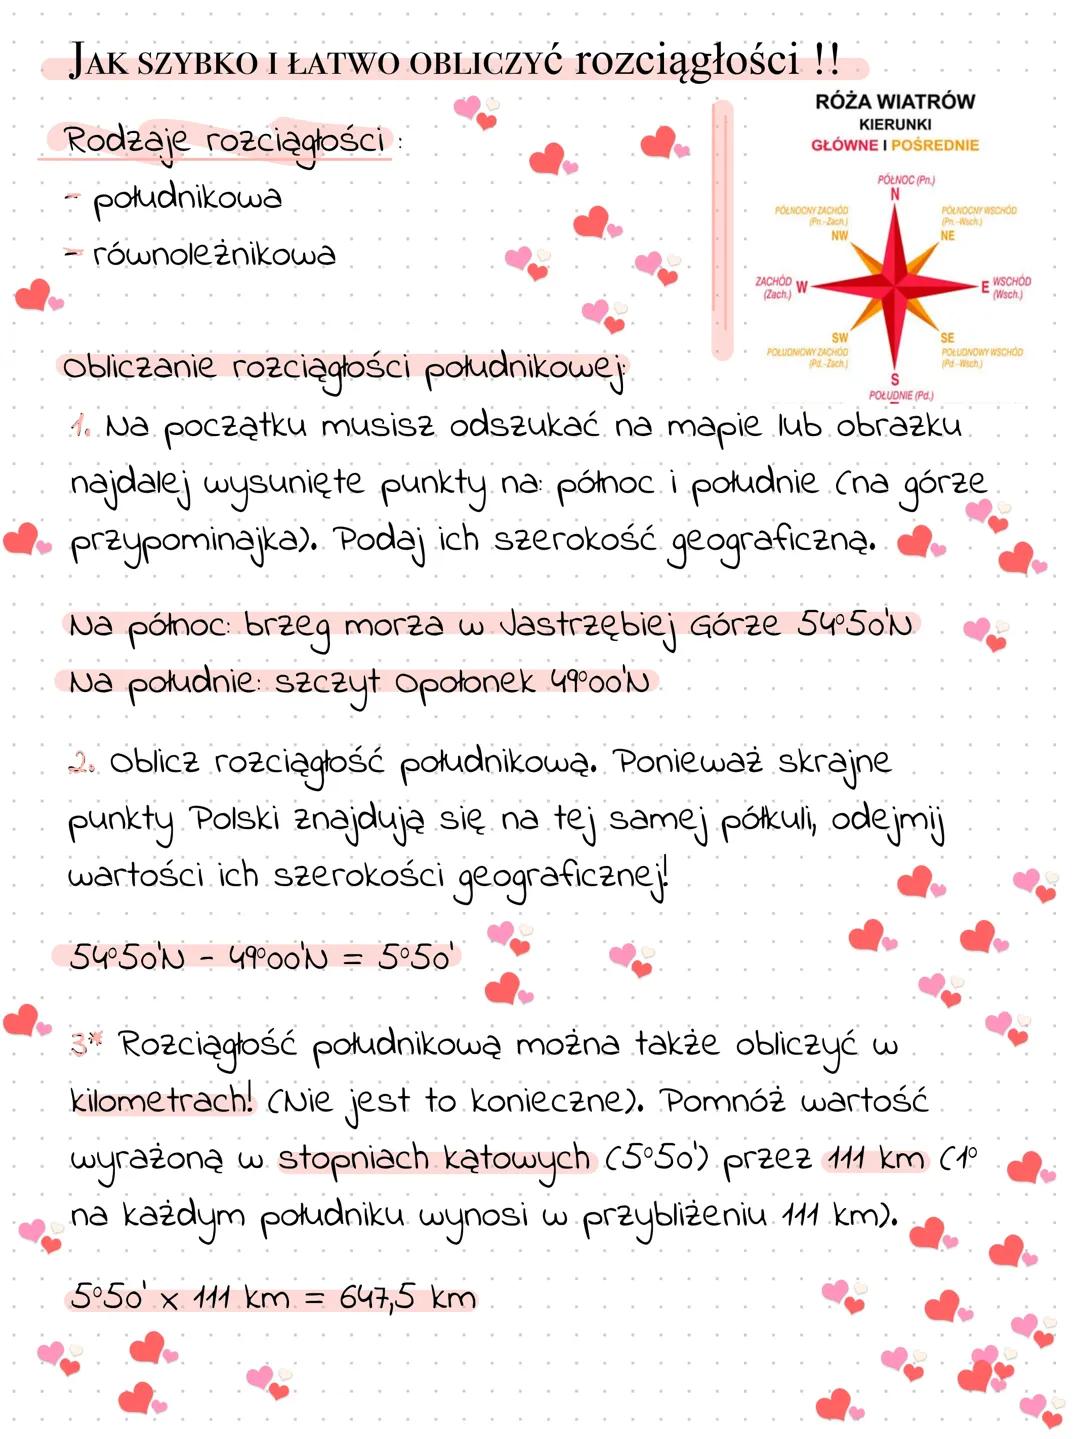 JAK SZYBKO I ŁATWO OBLICZYĆ rozciągłości !!
RÓŻA WIATRÓW
KIERUNKI
GŁÓWNE I POŚREDNIE
PÓŁNOC (Pn.)
N
PÓŁNOCNY ZACHÓD
(Pn.-Zach.)
NW
PÓŁNOCNY WSCHÓD
(Pn.-Wsch.)
NE
ZACHÓD
(Zach.)
W
E
WSCHÓD
(Wsch.)
SW
POŁUDNIOWY ZACHÓD
(Pd.-Zach.)
SE
POŁUDNIOWY WSCHÓD
(Pd.-Wsch.)
S
POŁUDNIE (Pd.)
Rodzaje rozciągłości:
- południkowa
- równoleżnikowa
Obliczanie rozciągłości południkowej:
1. Na początku musisz odszukać na mapie lub obrazku
najdalej wysunięte punkty na: północ i południe (na górze
przypominajka). Podaj ich szerokość geograficzną.
Na północ: brzeg morza w Jastrzębiej Górze 54°50'N
Na południe: szczyt Opołonek 49°00'N
2. Oblicz rozciągłość południkową. Ponieważ skrajne
punkty Polski znajdują się na tej samej półkuli, odejmij
wartości ich szerokości geograficznej!
54°50'N - 49°00'N = 5°50'
3* Rozciągłość południkową można także obliczyć w
kilometrach! (Nie jest to konieczne). Pomnóż wartość
wyrażoną w stopniach kątowych (5°50') przez 111 km (1°
na każdym południku wynosi w przybliżeniu 111 km).
5°50' x 111 km = 647,5 km